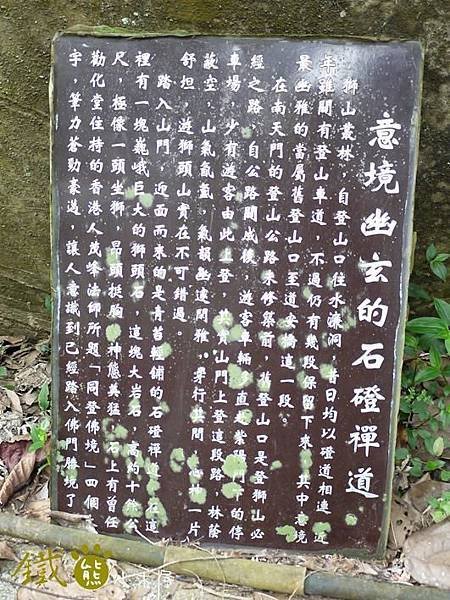 意境幽玄的石磴禪道
獅山叢林，自登山口往水濂洞，昔日均以磴道相連，近
年雖開有登山車道，不過仍有幾段保留下來，其中意境
最幽雅的當屬舊登山口至道安橋這一段。
在南天門的登山公路未修築前，舊登山口是登獅山必
經之路，自公路開成後，遊客車輛多直是紫陽門 的停
車場，少有遊客由此上登，其實山門上登這段路，林蔭
蔽空，山氣氤氳，氣韻幽遠閒雅。穿行其間，心神一片
舒坦，遊獅頭山實在不可錯過。
踏入山門，迎面而來的是青苔輕鋪的石磴禪道，在這
裡有一塊巍峨巨大的獅頭石，這塊大岩石，高約十餘公
尺，極像一頭坐獅，昂頭挺胸，神態美猛。石上有曾任
勸化堂住持的香港人茂峰法師所題「同登佛境」四個
字，筆力蒼勁豪邁，讓人意識到已經踏入佛門勝境了
鐵熊